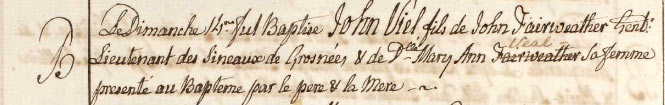 B
Le Dimanche 14me fut Baptise John Viel fils de John Fairweather Gentn.
Veal
Lieutenant des Sineaux de Grosnées & de Dlle. Mary Ann Fairweather Sa femme
presenté au Bapteme par le pere & la Mere ~.